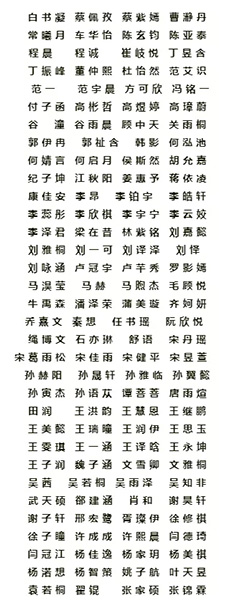 白书凝 蔡佩孜 蔡紫嫣 曹瀞丹
常曦月 车华怡 陈玄钧 陈亚泰
程晨 程诚 崔岐悦 丁昱含
丁振峰 董仲熙 杜怡然 范艾识
范一 范宇晨 方可欣 冯铭一
付子函 高彬哲 高煜婷 高璋蔚
谷潼 谷雨晨 顾中天 关雨桐
郭伊冉 郭祉含 韩影 何泓池
何婧言 何启月 侯斯然 胡允嘉
纪子坤 江秋阳 姜惠予 蒋依凌
康佳安 李昂 李铂宇 李皓轩
李蕊彤 李欣祺 李宇宁 李云姣
李泽君 梁在昔 林紫铭 刘嘉懿
刘雅桐 刘一可 刘译泽 刘怿
刘咏涵 卢冠宇 卢芊秀 罗影嫣
马淏莹 马赫 马煦杰 毛顾悦
牛禹森 潘泽荣 蒲美璇 齐妸妍
乔嘉文 秦想 任书瑶 阮欣悦
绳博文 石亦琳 舒语 宋丹瑶
宋葛雨松 宋佳雨 宋健平 宋昱萱
孙赫阳 孙晟轩 孙雅临 孙翼懿
孙寅杰 孙语苁 谭菩菩 唐雨煊
田润 王洪韵 王慧恩 王继鹏
王美懿 王瑞瞳 王润伊 王思玉
王雯琪 王一涵 王译晗 王永坤
王子润 魏子涵 文雪卿 文雅桐
吴茜 吴若桐 吴雨泽 吴知非
武天硕 郤建涵 肖和 谢昊轩
谢子轩 邢宏鹭 胥璨伊 徐修祺
徐子瞳 许成成 许熙晨 闫德琦
闫冠江 杨佳逸 杨家玥 杨美祺
杨渃想 杨智策 姚子航 叶天昱
袁若桐 翟锟 张家硕 张锦霖